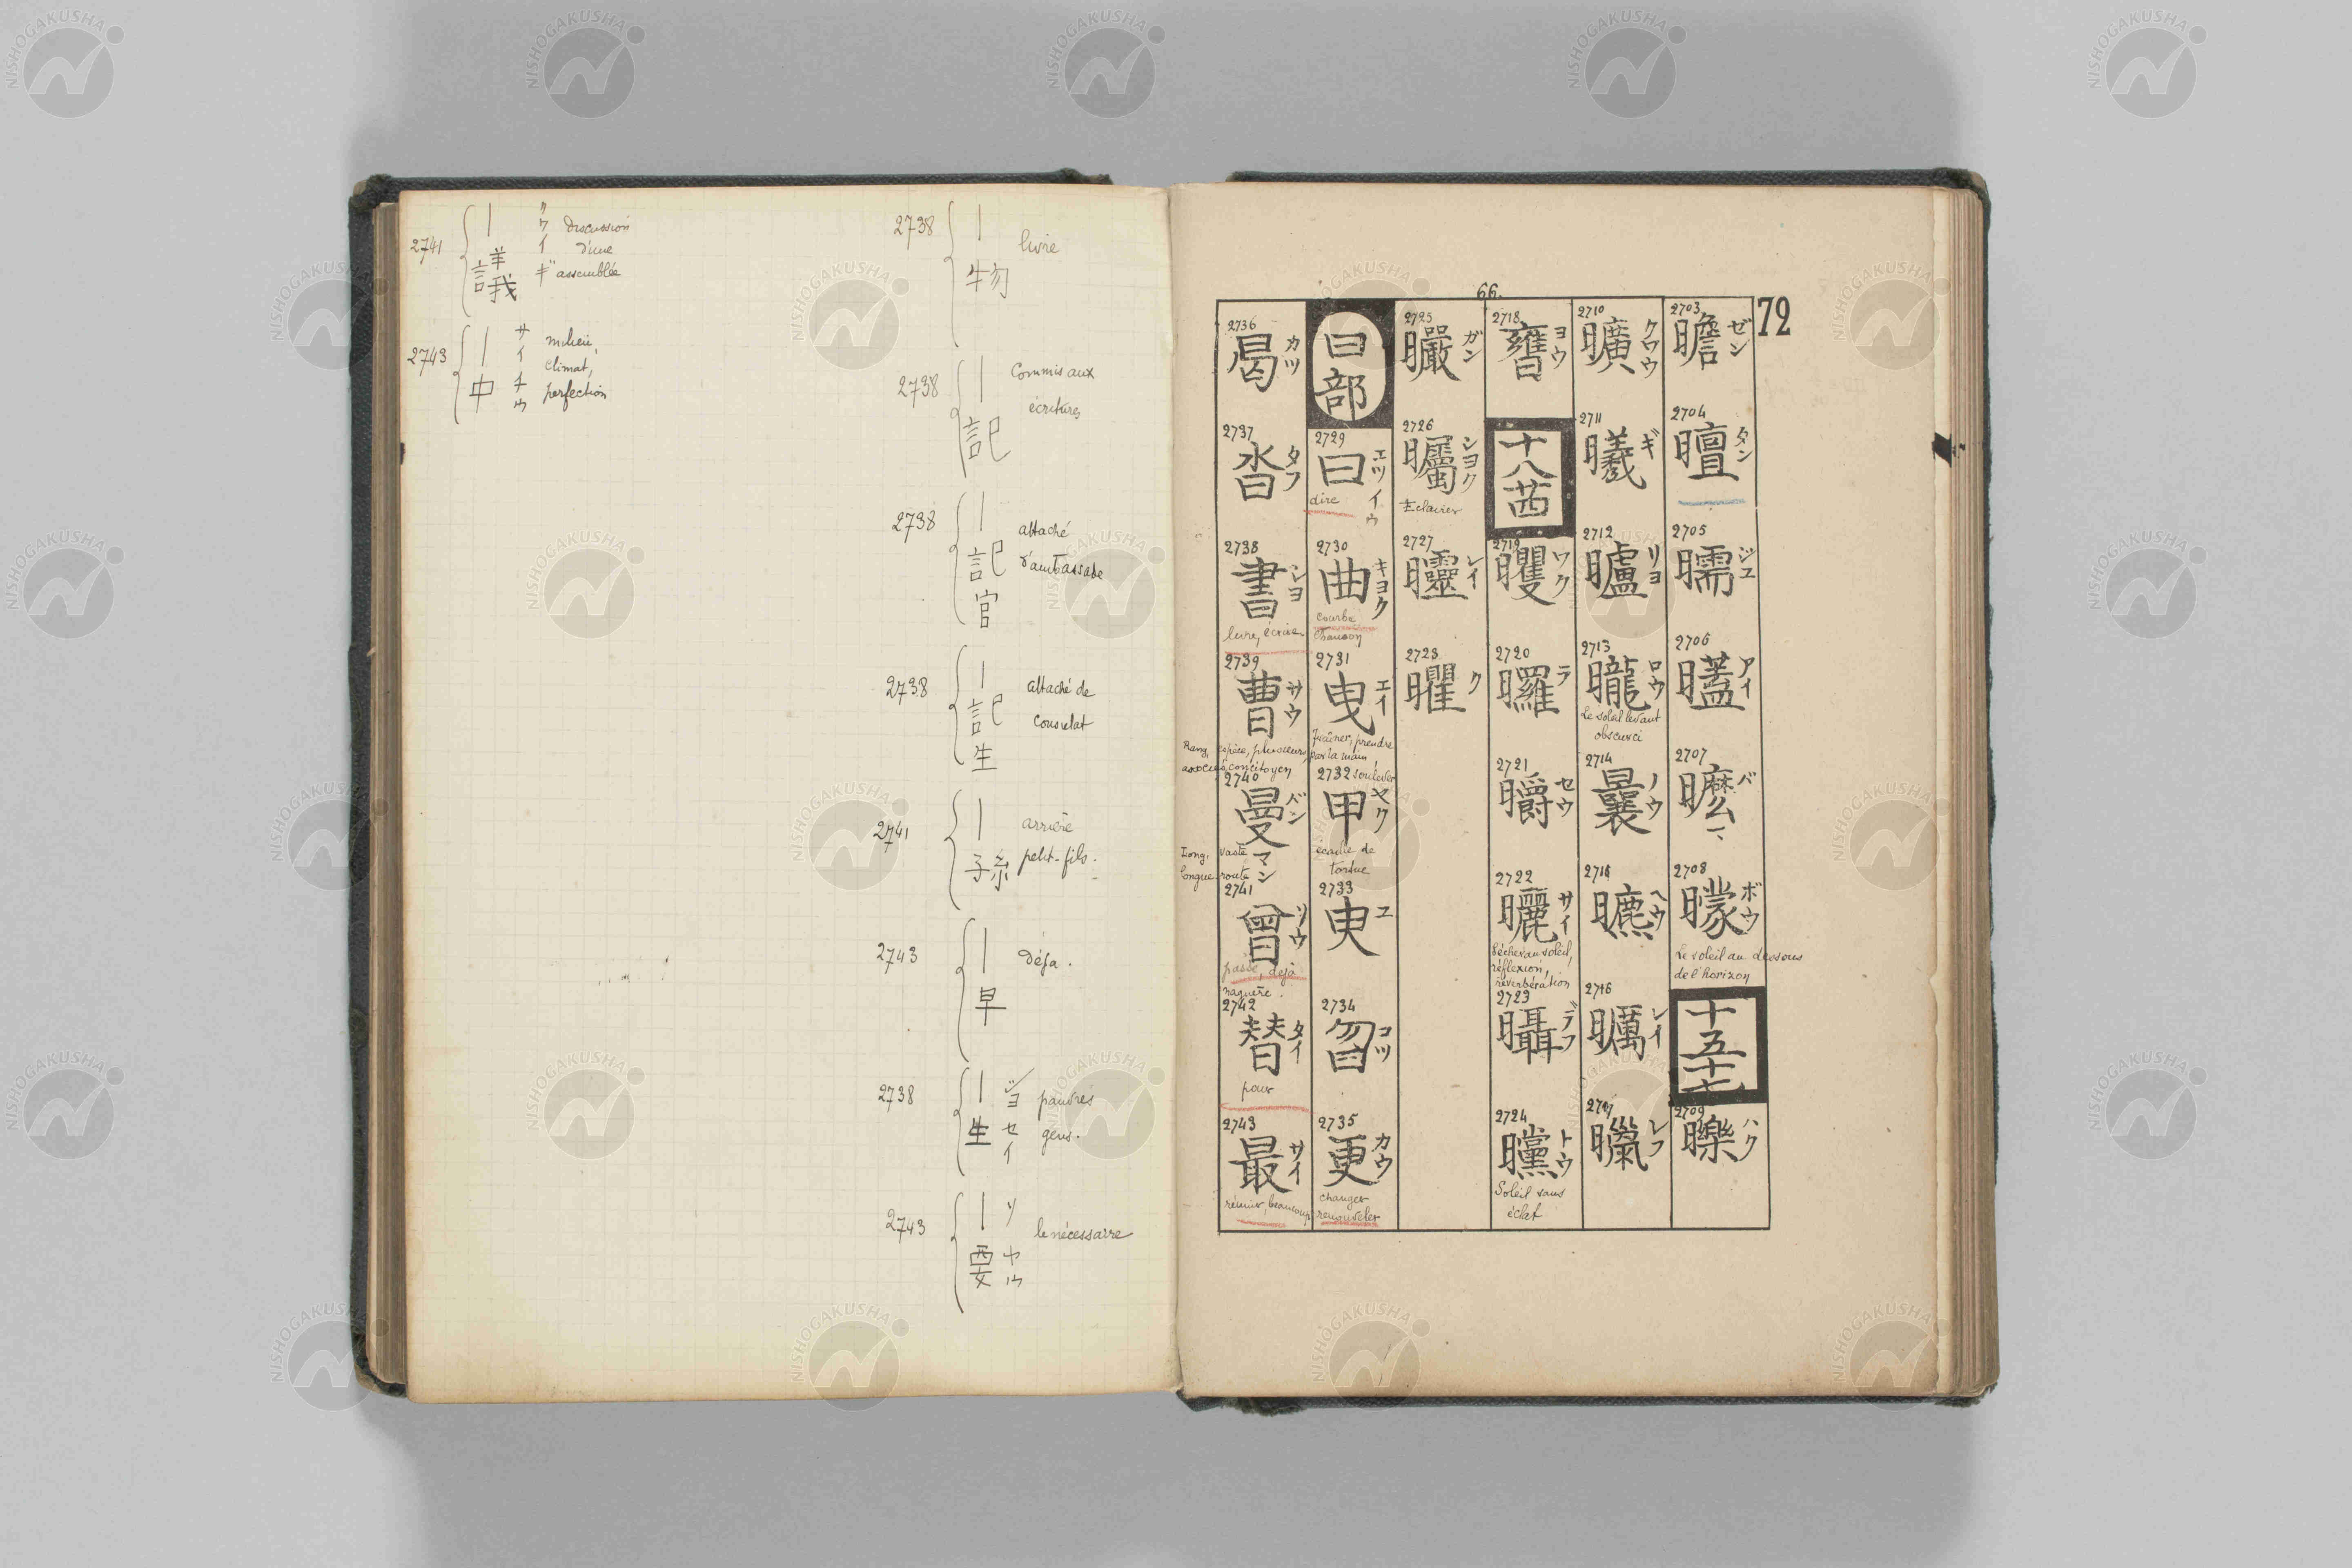 2741
｜
議
ヅウイギ
discussion
d'une
assemblée
2743
｜
中
サイチウ
milieu,
climat,
perfection
2738
｜
物
livre
2738
｜
記
Commis aux
écritures
2738
｜
記
官
attaché
d'ambassade
2738
｜
記
生
attaché de
consulat
2741
｜
孫
arrière
petit-fils.
2743
｜
早
Déja.
2738
｜
生
ジヨセイ
pauvres
gens.
2743
｜
要
ツヤウ
le nécessaire
66.
72
2703
瞻 ゼン
2704
䁴 タン
2705
曘 ジユ
2706
ア イ
2707
バ
2708
曚 ボウ
Le soleil au dessous
de l'horizon
十五
十七
2709
ハク
2710
曠 クワウ
2711
曦 ギ
2712
リヨ
2713
曨 ロウ
Le soleil levant
obscurci
2714
曩 ノウ
2715
ヘウ
2716
レイ
2717
レフ
2718
ヨウ
十八
茜
2719
ワク
2720
ラ
2721
セウ
2722
曬 サイ
Sécher au soleil,
réflexion,
réverbération
2723
2724
曭 トウ
Soleil sans
éclat
2725
曮 ガン
2726
曯 シヨク
Eclairer
2727
レイ
2728
ク
曰部
2729
曰 エツ イウ
dire
2730
曲 キヨク
courbe
chanson
2731
曳 エイ
Traîner, prendre
par la main,
2732 soulever
甲
écaille de
tortue
2733
曳 ユ
2734
曶 コツ
2735
更 カウ
changer
renouveler
2736
曷 カツ
2737
沓 タフ
2738
書 シヨ
livre, écrire
2739
曹 サウ
Rang, espèce, plusieurs,
associés, concitoyen
2740
曼 バン
マン
Long, vaste
longue route
2741
曾 ソウ
passé, dejà
naguère.
2742
替 タイ
pour
2743
最 サイ
réunir, beaucoup
NISHOGAKUSHA